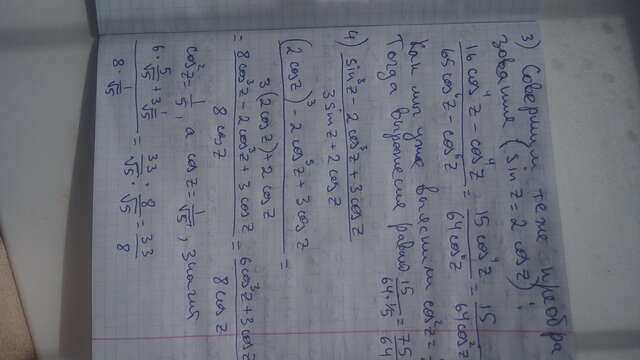 3) Совершим те же преобра
зования (sin z = 2 cos z):
(16 cos⁴z - cos⁴z)/(65 cos⁶z - cos⁶z) = (15 cos⁴z)/(64 cos⁶z) = 15/(64 cos²z)
Как мы уже выяснили cos²z =
Тогда выражение равно 15/(64·1/5) = 75/64
4) (sin³z - 2 cos³z + 3 cos z)/(3 sin z + 2 cos z)
((2 cos z)³ - 2 cos³z + 3 cos z)/(3(2 cos z) + 2 cos z) =
= (8 cos³z - 2 cos³z + 3 cos z)/(8 cos z) = (6 cos³z + 3 cos z)/(8 cos z)
cos²z = 1/5, а cos z = 1/√5, значит